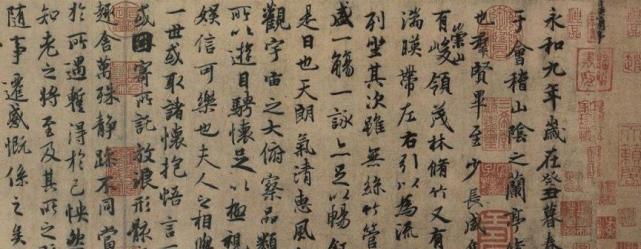 永和九年歲在癸丑暮春
于會稽山陰之蘭亭
也群賢畢至少長咸
崇山
有峻領茂林脩竹又有
湍暎帶左右引以為流
列坐其次雖無絲竹管
盛一觴一詠亦足以暢
是日也天朗氣清惠風
觀宇宙之大俯察品類
所以遊目騁懷足以極視
娛信可樂也夫人之相與
一世或取諸懷抱悟言一
或因寄所託放浪形骸
趣舍萬殊靜躁不同當
於所遇暫得於己怏然
知老之將至及其所之
隨事遷感慨係之矣